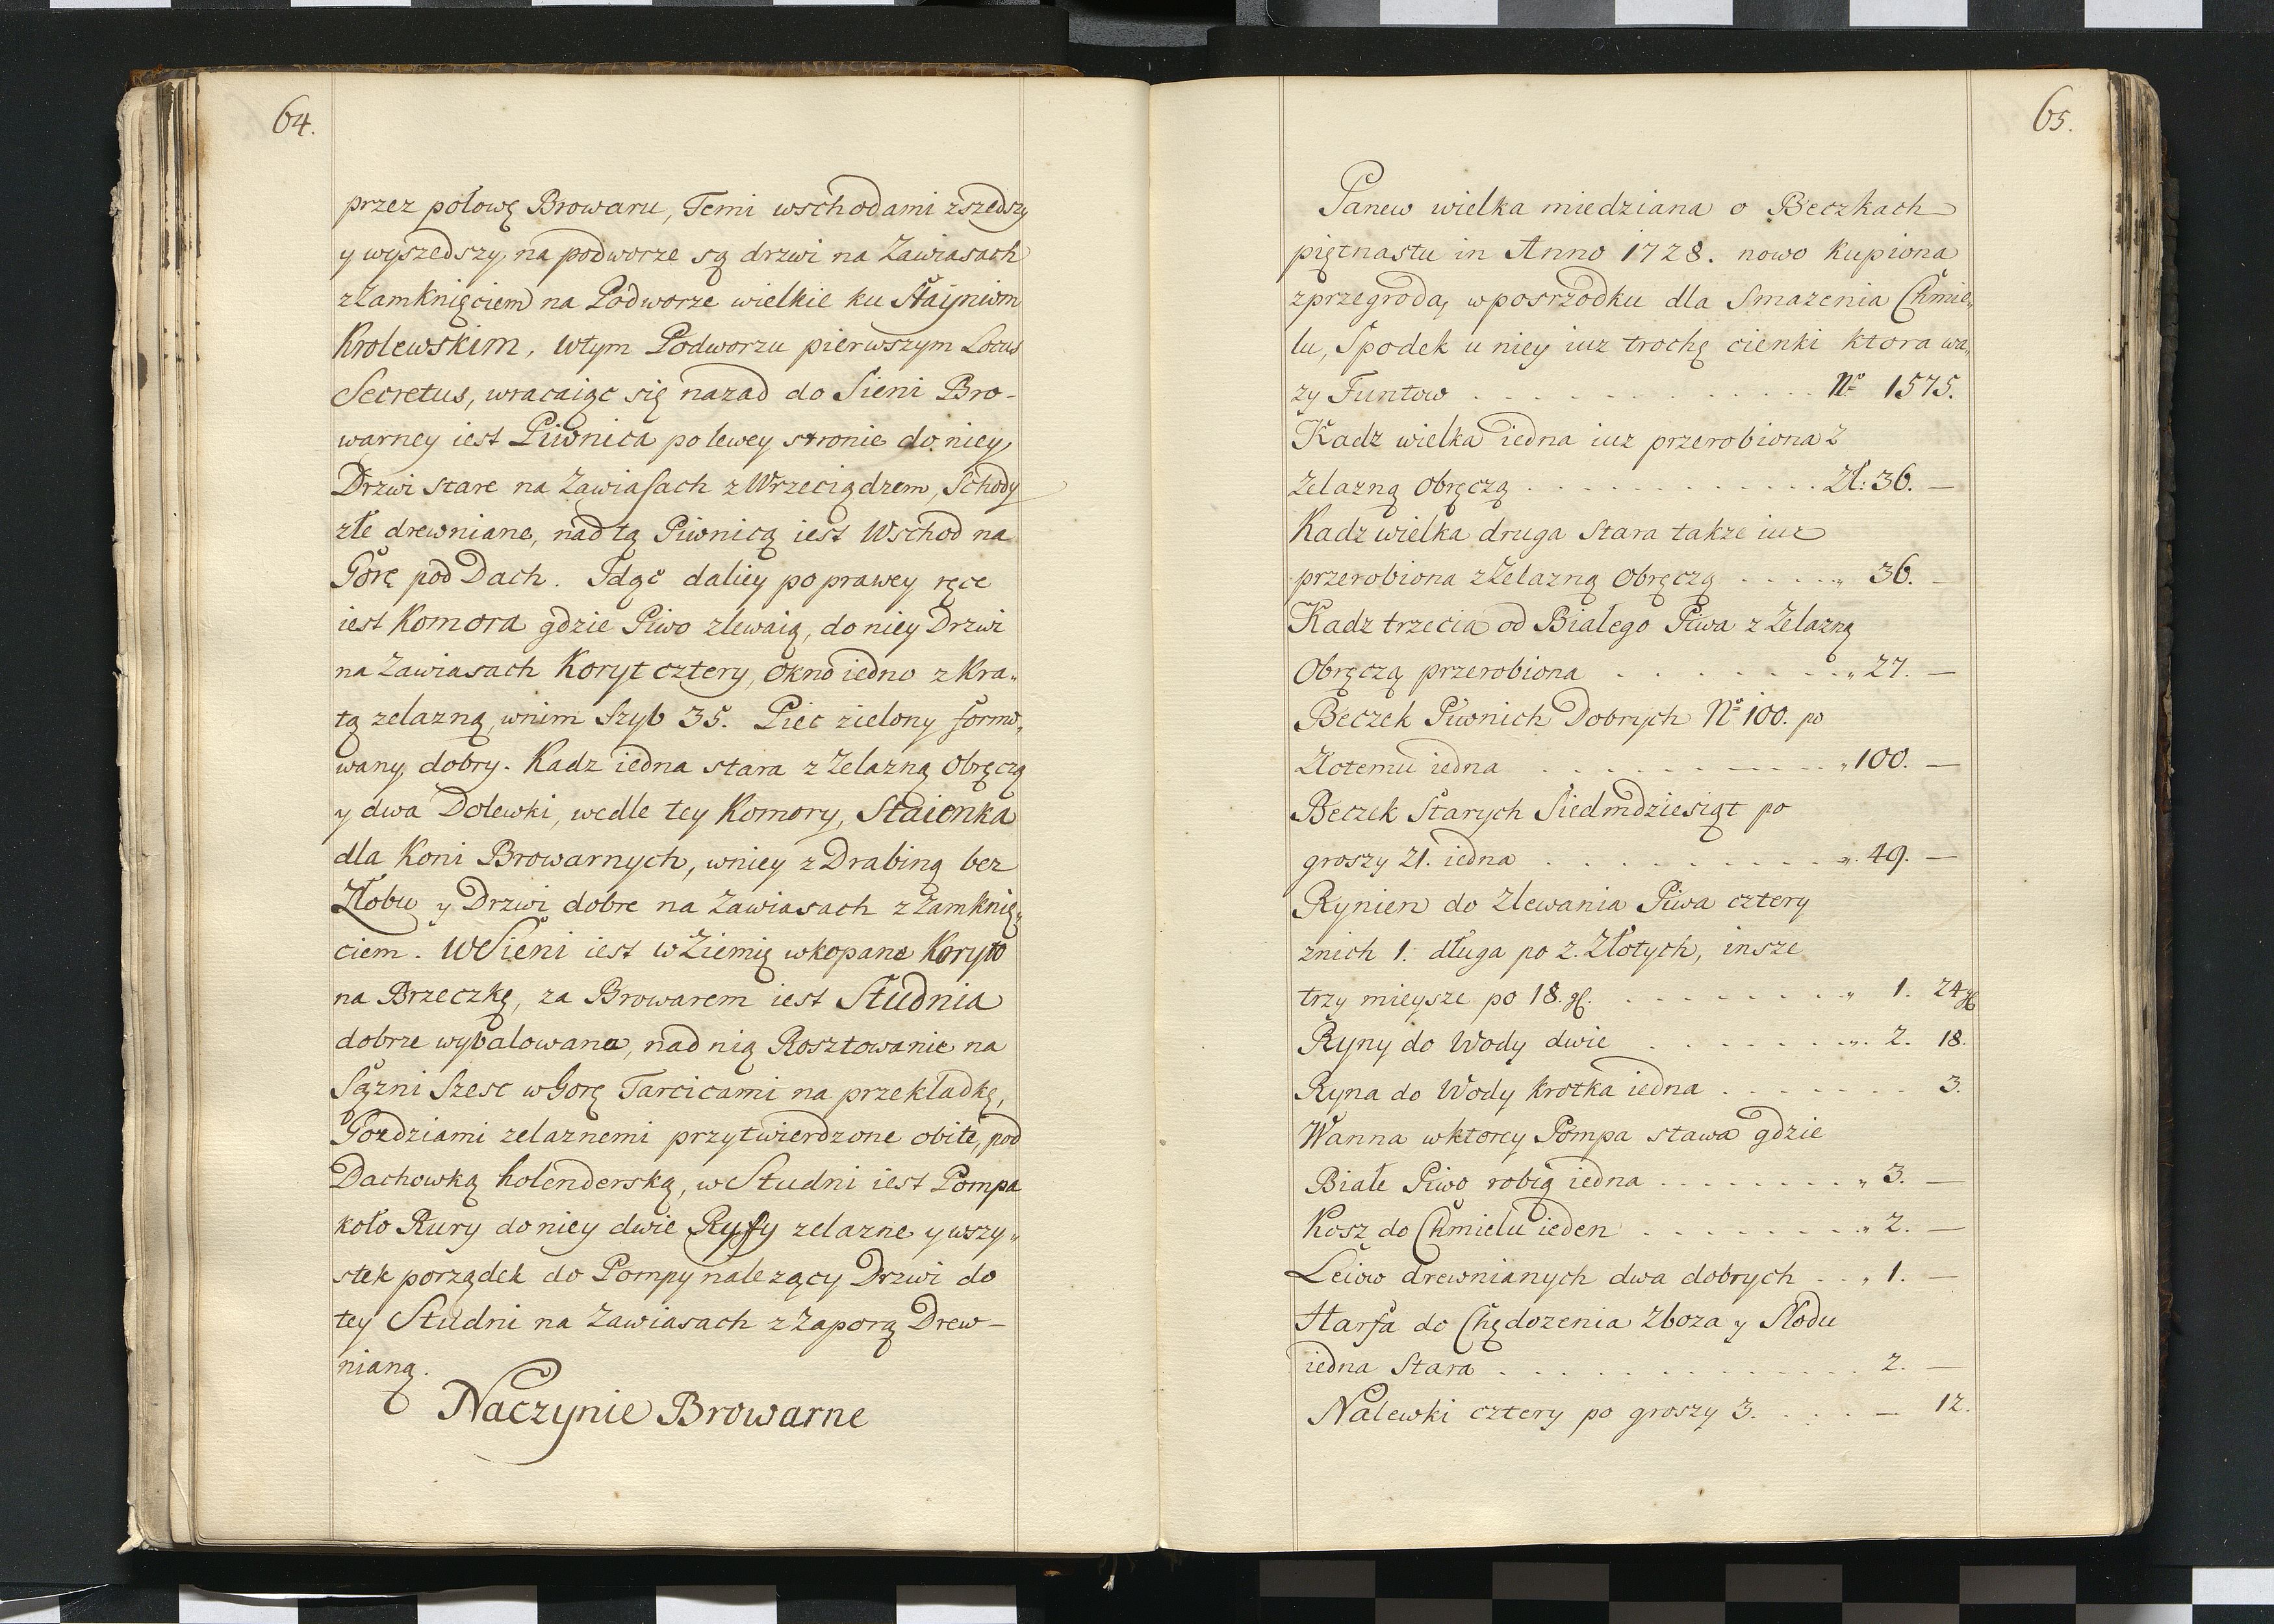 64.
przez połowę Browaru, Temi wschodami zszedszy
y wyszedszy na podworze są drzwi na Zawiasach
z Zamknięciem na Podworze wielkie ku Stayniom
Krolewskim, wtym Podworzu pierwszym Locus
Secretus, wracaiąc się nazad do Sieni Bro-
warney iest Piwnica po lewey stronie do niey,
Drzwi stare na Zawiasach z Wrzeciądzem, Schody
złe drewniane, nad tą Piwnicą iest Wschod na
Gorę pod Dach. Idąc daliey po prawey ręce
iest Komora gdzie Piwo zlewaią, do niey Drzwi
na Zawiasach Koryt cztery, Okno iedno z Kra„
tą zelazną, wnim Szyb 35. Piec zielony formo„
wany, dobry. Kadz iedna stara z Zelazną Obręczą
y dwa Dolewki, wedle tey Komory, Staienka
dla Koni Browarnych, wniey z Drabiną bez
Złobu y Drzwi dobre na Zawiasach z Zamknię„
ciem. WSieni iest w Ziemię wkopane Koryto
na Brzeczkę, za Browarem iest Studnia
dobrze wybalowana, nad nią Rosztowanie na
Sązni Szesc w Gorę Tarcicami na przekładkę,
Gozdziami zelaznemi przytwierdzone obite, pod
Dachowką holenderską, w Studni iest Pompa
koło Rury do niey dwie Ryfy zelazne y wszy„
stek porządek do Pompy nalezący Drzwi do
tey Studni na Zawiasach z Zaporą Drew-
nianą.
Naczynie Browarne
65.
Panew wielka miedziana o Beczkach
piętnastu in Anno 1728. nowo kupiona
z przegrodą, w posrzodku dla Smazenia Chmie„
lu, Spodek u niey iuz trochę cienki ktora wa„
zy Funtow . . . . . . . . . . . . . Nº 1575.
Kadz wielka iedna iuz przerobiona z
Zelazną Obręczą . . . . . . . . . . . . Zł: 36. —
Kadz wielka druga stara takze iuz
przerobiona z Zelazną Obręczą . . . . . „ 36. -
Kadz trzecia od Białego Piwa z Zelazną
Obręczą przerobiona . . . . . . . . „ 27. —
Beczek Piwnich Dobrych Nº 100. po
Złotemu iedna . . . . . . . . . . . „ 100. —
Beczek Starych Siedmdziesiąt po
groszy 21. iedna . . . . . . . . . . „ 49. —
Rynien do Zlewania Piwa cztery
znich 1. długa po 2. Złotych, insze
trzy mieysze po 18. gl. . . . . . . . . „ 1. 24 gl
Ryny do Wody dwie . . . . . . . . „ 2. 18.
Ryna do Wody krotka iedna . . . . . . . 3.
Wanna wktorey Pompa stawa gdzie
Białe Piwo robią iedna . . . . . . . . „ 3. —
Kosz do Chmielu ieden . . . . . . . . „ 2. —
Leiow drewnianych dwa dobrych . . „ 1. —
Harfa do Chędozenia Zboza y Słodu
iedna Stara . . . . . . . . . . . . . 2. —
Nalewki cztery po groszy 3. . . . . — 12.